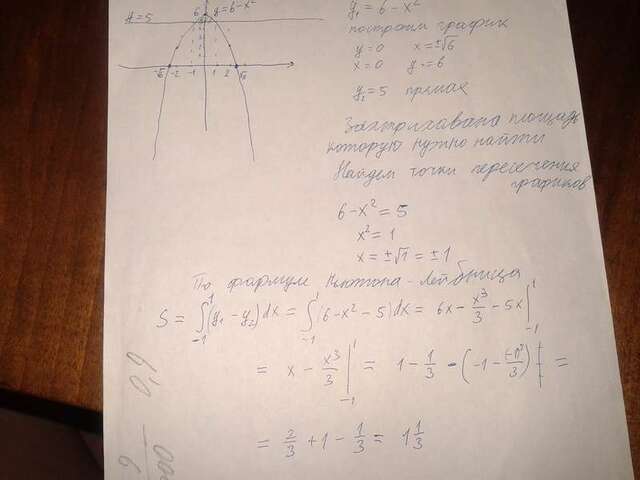 y=5
6
y=6-x²
-√6 -2 -1 1 2 √6
y₁=6-x²
построим график
y=0 x=±√6
x=0 y=6
y₂=5 прямая
Заштрихована площадь
которую нужно найти
Найдем точки пересечения
графиков
6-x²=5
x²=1
x=±√1=±1
По формул Ньютона-Лейбница
S = ∫₋₁¹(y₁-y₂)dx = ∫₋₁¹(6-x²-5)dx = 6x - x³/3 - 5x |₋₁¹
= x - x³/3 |₋₁¹ = 1 - 1/3 - (-1 - (-1)³/3) =
= 2/3 + 1 - 1/3 = 1 1/3